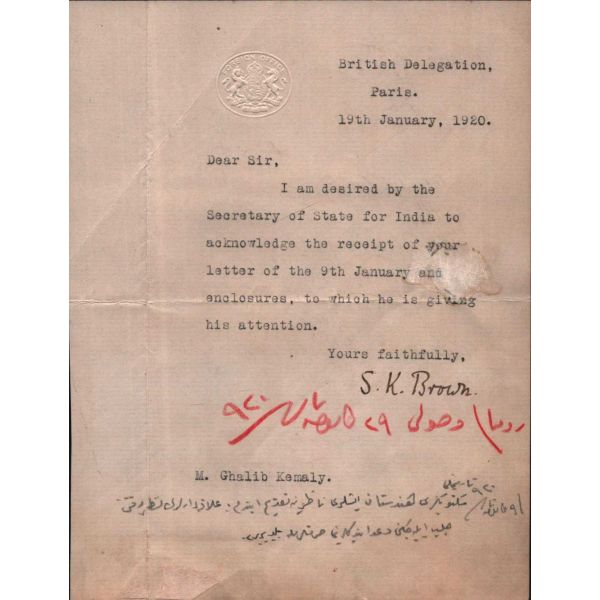 FOREIGN OFFICE
British Delegation,
Paris.
19th January, 1920.
Dear Sir,
I am desired by the
Secretary of State for India to
acknowledge the receipt of your
letter of the 9th January and
enclosures, to which he is giving
his attention.
Yours faithfully,
S. K. Brown.
روما وصولى ٢٩ ٩٢٠
M. Ghalib Kemaly.
هندستان ناظرينه تقديم